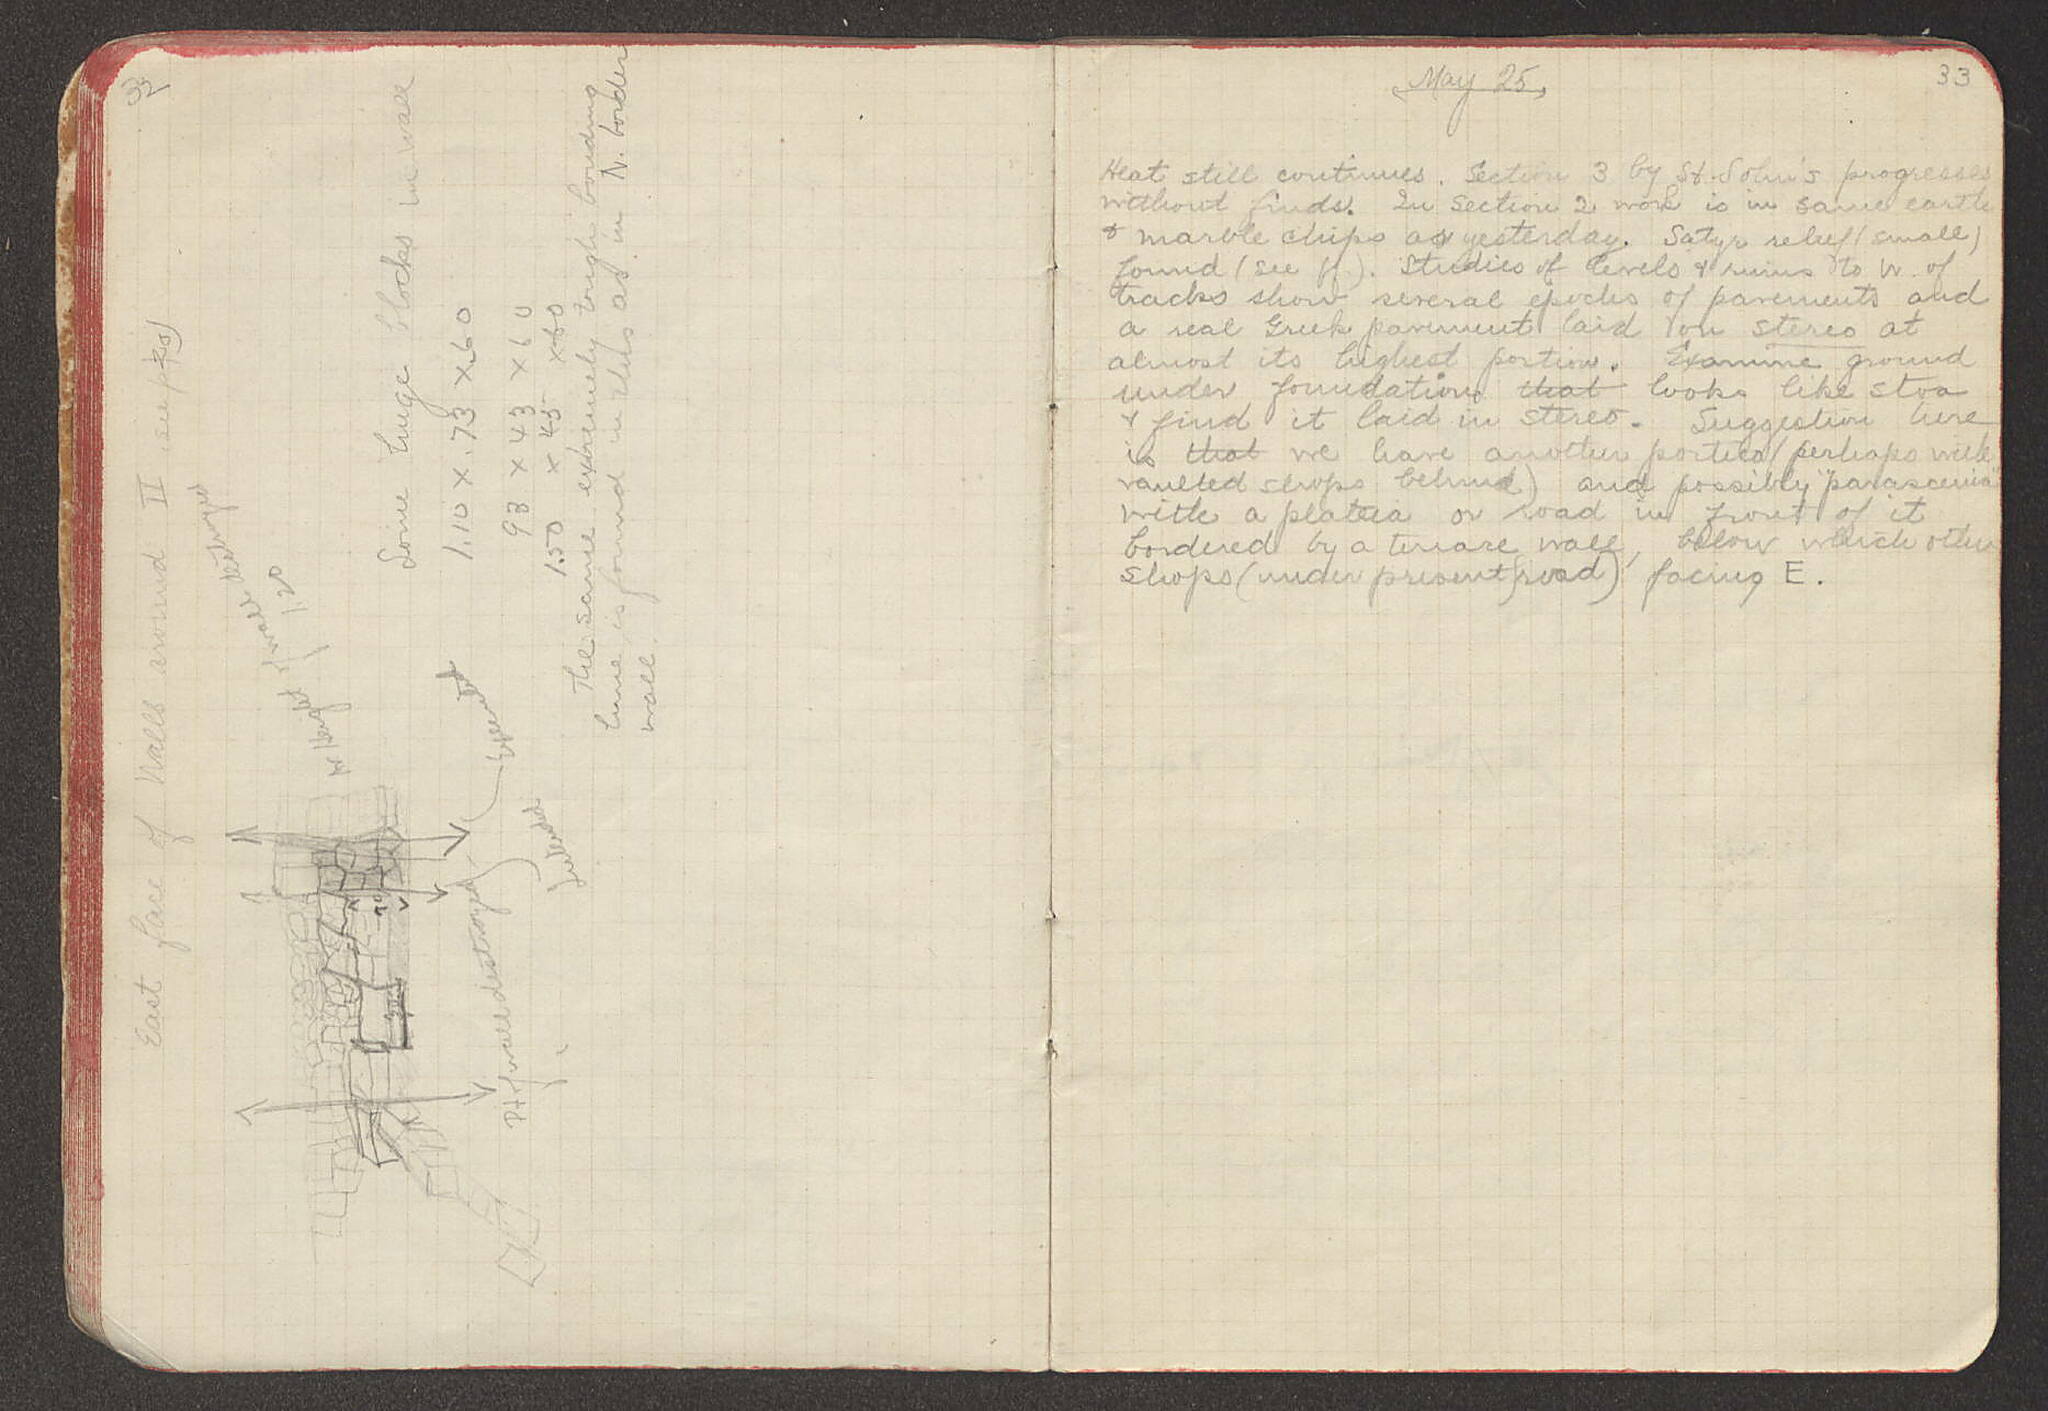 32
East face of Walls around II see p
Pt of wall destroyed
Height 1.20
Some huge blocks in wall
1.10 x .73 x .60
93 x 43 x 60
1.50 x 45 x 60
The same extremely tough bonding
lime is found in this as in N. border
wall.
Exterior
Interior
Pt of wall destroyed
33
May 25,
Heat still continues. Section 3 by St. John's progresses
without finds. In Section 2 work is in same earth
& marble chips as yesterday. Satyr relief (small)
found (see p. ). Studies of levels & ruins to W. of
tracks show several epochs of pavements and
a real Greek pavement laid on stereo at
almost its highest portion. Examine ground
under foundation that looks like stoa
& find it laid in stereo. Suggestion here
is that we have another portico (perhaps with
vaulted shops behind) and possibly "parascenia"
with a plateia or road in front of it
bordered by a terrace wall, below which other
shops (under present road) facing E.